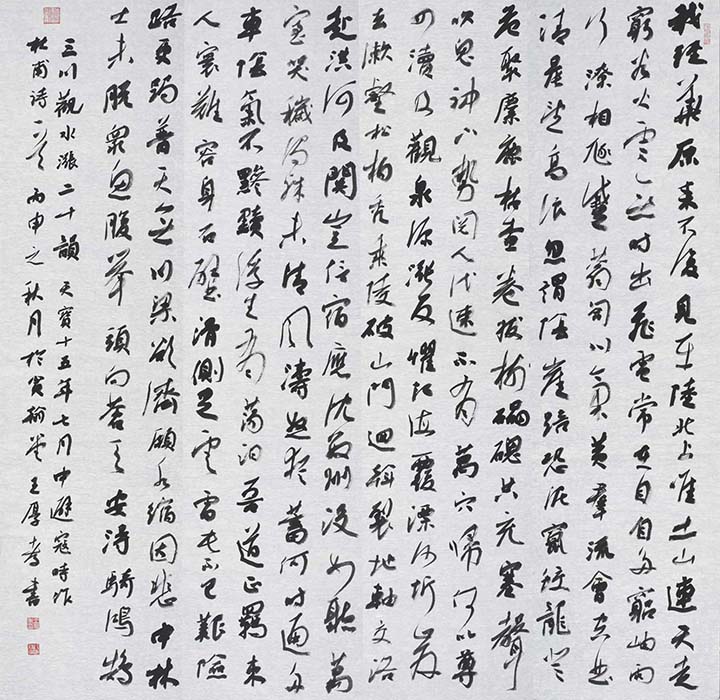 我經華原來不復見平陸北上唯土山連天走
窮谷火雲無時出飛電常在目自多窮岫雨
行潦相豗蹙蓊匌川氣黄群流會空曲
清晨望高浪忽謂陰崖踣恐泥竄蛟龍登
危聚麋鹿枯查卷拔樹礧磈共充塞聲
吹鬼神下勢閲人代速不有萬穴歸何以尊
四瀆及觀泉源漲反懼江海覆漂沙圻岸
去漱壑松柏秃乘陵破山門迴斡裂地軸交洛
赴洪河及關豈信宿應沈數州没如聽萬
室哭穢濁殊未清風濤怒猶蓄何時通舟
車陰氣不黪黷浮生有蕩汩吾道正羈束
人寰難容身石壁滑側足雲雷屯不已艱險
路更跼普天無川梁欲濟願水縮因悲中林
士未脱衆魚腹舉頭向蒼天安得騎鴻鵠
三川觀水漲二十韻 天寶十五年七月中避寇時作
杜甫詩一首 丙申之秋月於 王厚 書